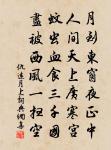 月到東窗夜正中
人間天上廣寒宮
蚊虫血食三千國
盡被西風一掃空
仇遠月上